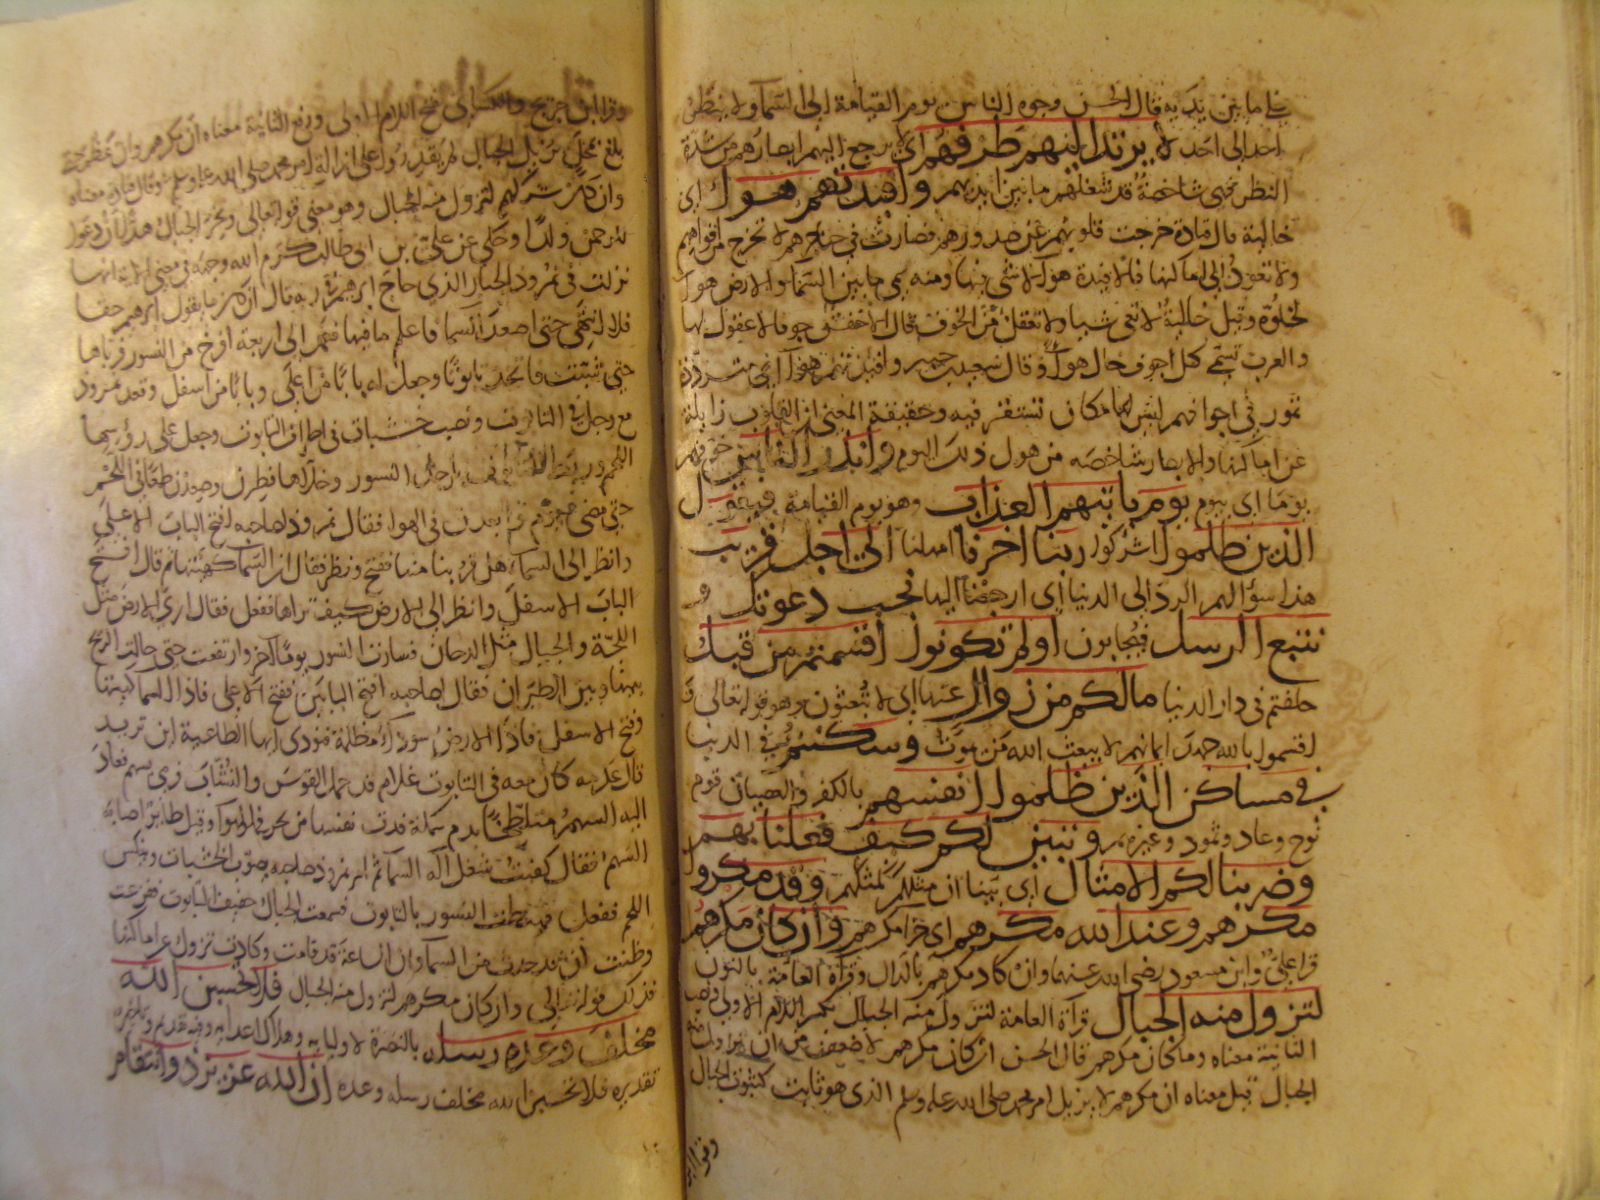 على ما بين يديه قال الحسن وجوه الناس يوم القيامة الى السماء ولا ينظر
احد الى احد لا يرتد اليهم طرفهم اي لا يرجع اليهم ابصارهم من شدة
النظر فهي شاخصة قد شغلهم ما بين ايديهم وافئدتهم هواء اي
خالية قال قتادة خرجت قلوبهم عن صدورهم فصارت في حناجرهم لا تخرج من افواههم
ولا تعود الى اماكنها فالافئدة هواء لا شي فيها ومنه سمي ما بين السماء والارض هواء
لخلوه وقيل خالية لا تعي شيا ولا تعقل من الخوف قال الاخفش جوفا لا عقول لها
والعرب تسمي كل اجوف خال هواء وقال سعيد بن جبير وافئدتهم هواء اي مترددة
تمور في اجوافهم ليس لها مكان تستقر فيه وحقيقة المعنى ان القلوب زايلة
عن اماكنها والابصار شاخصة من هول ذلك اليوم وانذر الناس خوفهم
يوما اي بيوم يوم ياتيهم العذاب وهو يوم القيامة فيقول
الذين ظلموا اشركوا ربنا اخرنا امهلنا الى اجل قريب
هذا سؤالهم الرد الى الدنيا اي ارجعنا اليها نجب دعوتك و
نتبع الرسل فيجابون اولم تكونوا اقسمتم من قبل
حلفتم في دار الدنيا ما لكم من زوال عنها اي لا تبعثون وهو قوله تعالى و
اقسموا بالله جهد ايمانهم لا يبعث الله من يموت وسكنتم في الدنيا
في مساكن الذين ظلموا انفسهم بالكفر والعصيان قوم
نوح وعاد وثمود وغيرهم وتبين لكم كيف فعلنا بهم
وضربنا لكم الامثال اي بينا ان مثلكم كمثلهم وقد مكروا
مكرهم وعند الله مكرهم اي جزا مكرهم وان كان مكرهم
قرا علي وابن مسعود رضي الله عنهما وان كاد مكرهم بالدال وقراة العامة بالنون
لتزول منه الجبال قراة العامة لتزول منه الجبال بكسر اللام الاولى ونصب
الثانية معناه وما كان مكرهم قال الحسن ان كان مكرهم لاضعف من ان تزول منه
الجبال قيل معناه ان مكرهم لا يزيل امر محمد صلى الله عليه وسلم الذي هو ثابت كثبوت الجبال
وقرا ابن
وقرا ابن جريج والكسائي بفتح اللام الاولى ورفع الثانية معناه ان مكرهم وان عظم حتى
بلغ محلا يزيل الجبال لم يقدروا على ازالة امر محمد صلى الله عليه وسلم وقال قتادة معناه
وان كان شركهم لتزول منه الجبال وهو معنى قوله تعالى وتخر الجبال هدا ان دعوا
للرحمن ولدا وحكي عن علي بن ابي طالب كرم الله وجهه في معنى الاية انها
نزلت في نمرود الجبار الذي حاج ابرهيم في ربه قال ان كان ما يقول ابرهيم حقا
فلا انتهي حتى اصعد السما فاعلم ما فيها فعمد الى اربعة افرخ من النسور فرباها
حتى شبت فاتخذ تابوتا وجعل له بابا من اعلى وبابا من اسفل وقعد نمرود
مع رجل في التابوت ونصب خشبات في اطراف التابوت وجعل على رؤسها
اللحم وربط التابوت بارجل النسور وخلاها فطرن وصعدن طمعا في اللحم
حتى مضى يوم وابعدن في الهوا فقال نمرود لصاحبه افتح الباب الاعلى
وانظر الى السماء هل قربنا منها ففتح ونظر فقال ان السما كهيئتها ثم قال افتح
الباب الاسفل وانظر الى الارض كيف تراها ففعل فقال ارى الارض مثل
اللجة والجبال مثل الدخان فسارت النسور يوما اخر وارتفعت حتى حالت الريح
بينها وبين الطيران فقال لصاحبه افتح البابين ففتح الاعلى فاذا السما كهيئتها
وفتح الاسفل فاذا الارض سوداء مظلمة فنودي ايها الطاغية اين تريد
قال عكرمة كان معه في التابوت غلام قد حمل القوس والنشاب فرمى بسهم فعاد
اليه السهم متلطخا بدم سمكة قذفت نفسها من بحر في الهوا وقيل طاير اصابه
السهم فقال كفيت شغل اله السما ثم امر نمرود صاحبه يصوب الخشبات وينكس
اللحم ففعل فهبطت النسور بالتابوت فسمعت الجبال حفيف التابوت ففزعت
وظنت ان قد حدث من السما وان الساعة قد قامت وكادت تزول عن اماكنها
فذلك قوله تعالى وان كان مكرهم لتزول منه الجبال فلا تحسبن الله
مخلف وعده رسله بالنصرة لاوليايه وهلاك اعدايه وفيه تقديم وتاخير
تقديره فلا تحسبن الله مخلف رسله وعده ان الله عزيز ذو انتقام